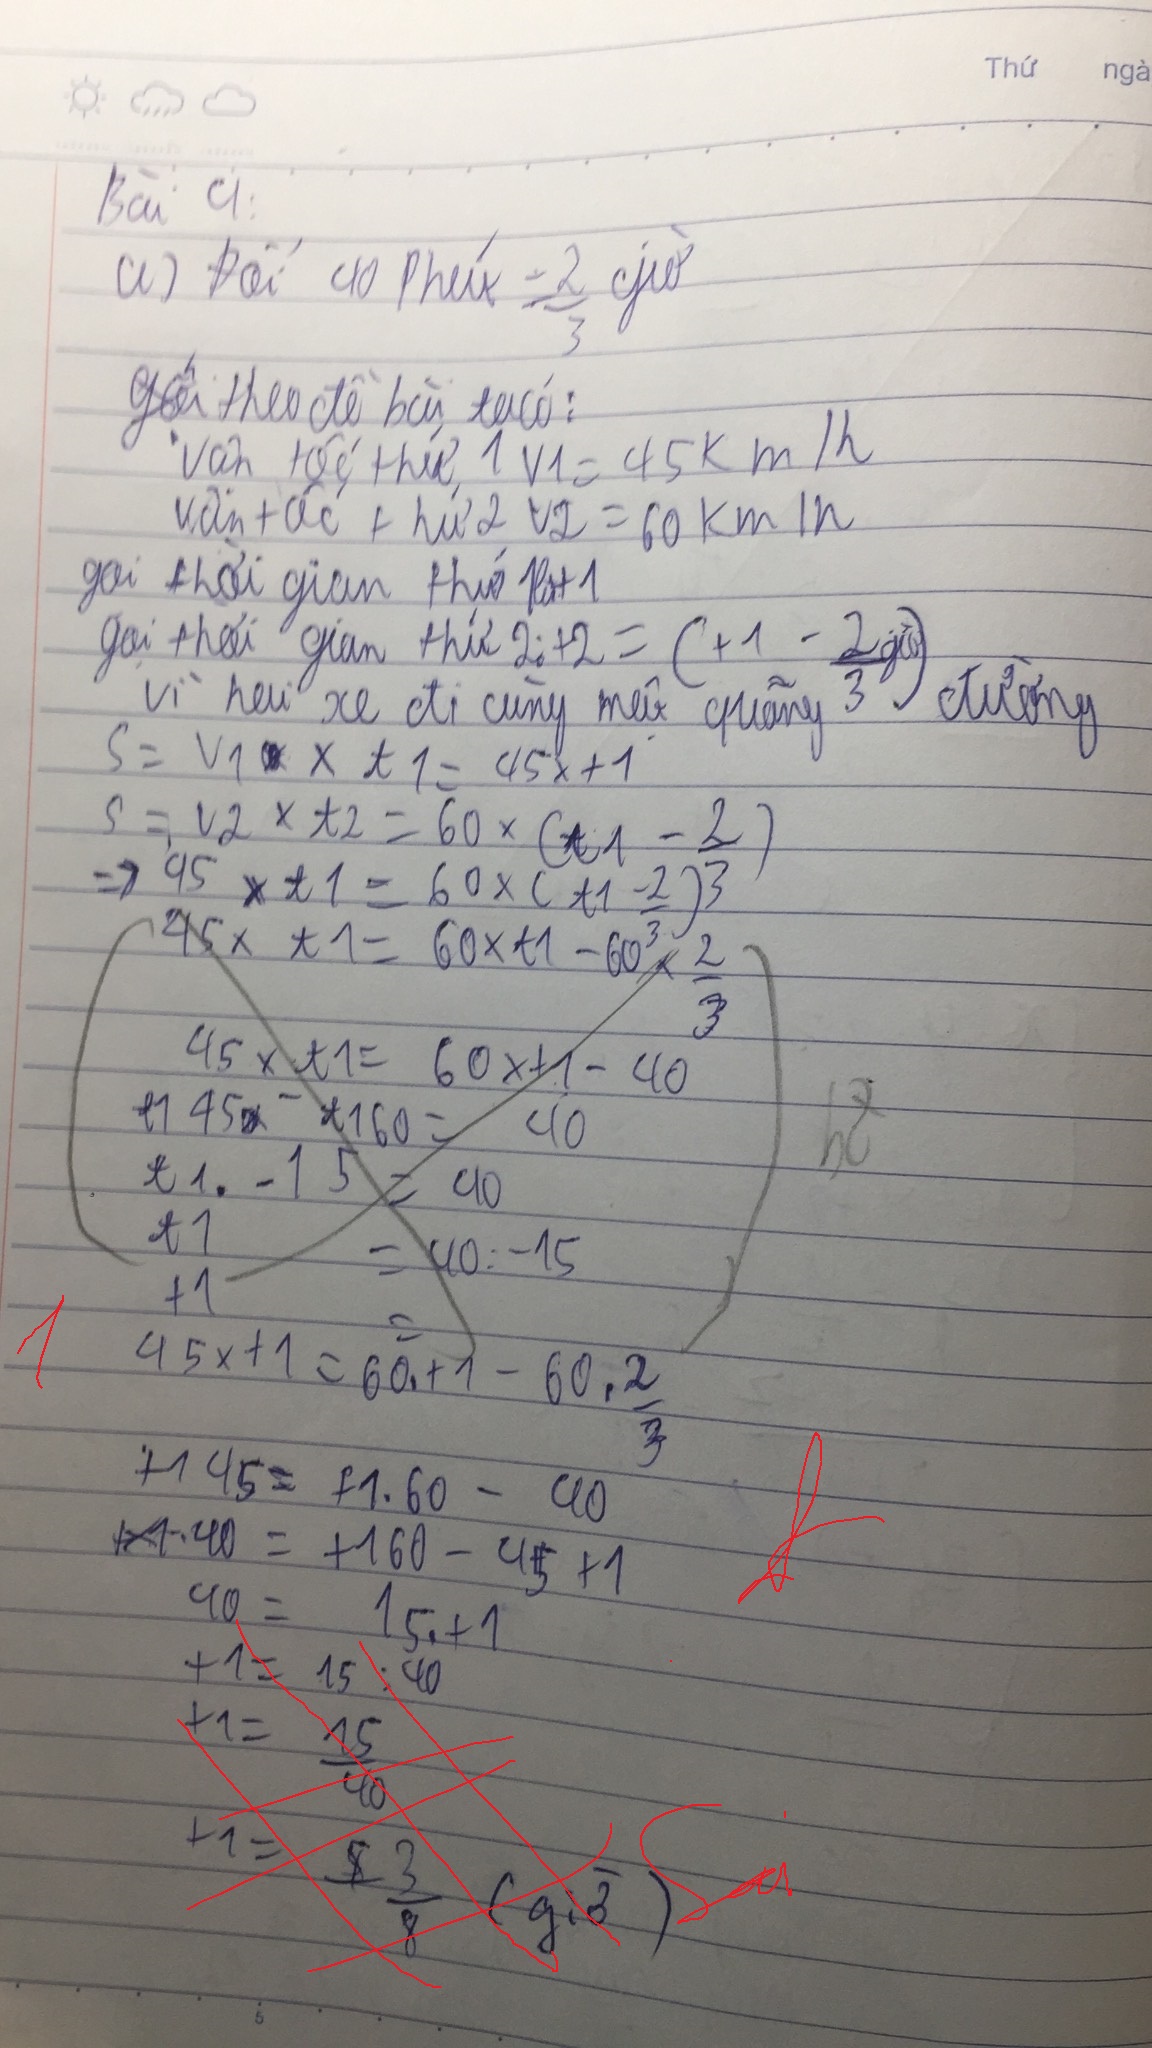 Thứ ngà
Bài 4:
a) Đổi 40 Phút = 2/3 giờ
theo đề bài ta có:
vận tốc thứ 1 V1 = 45 Km/h
vận tốc thứ 2 V2 = 60 Km/h
gọi thời gian thứ t1
gọi thời gian thứ 2: t2 = (t1 - 2/3 giờ)
vì hai xe đi cùng một quãng đường
S = V1 x t1 = 45 x t1
S = V2 x t2 = 60 x (t1 - 2/3)
=> 45 x t1 = 60 x (t1 - 2/3)
45 x t1 = 60 x t1 - 60 x 2/3
45 x t1 = 60 x t1 - 40
t1 45 - t1 60 = 40
t1. -15 = 40
t1 = 40 : -15
t1 =
45 x t1 = 60. t1 - 60. 2/3
1
t1 45 = t1. 60 - 40
40 = t1 60 - 45 t1
40 = 15. t1
t1 = 15 : 40
t1 = 15/40
t1 = 3/8 (giờ)
Sai
5